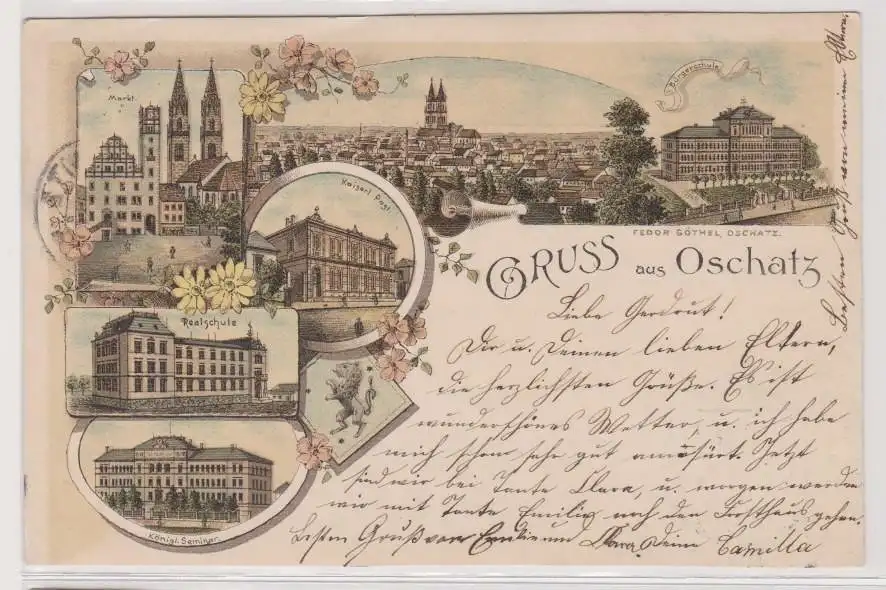 Markt.
Bürgerschule
Kaiserl. Post.
FEDOR GÖTHEL, OSCHATZ.
GRUSS aus OSCHATZ
Realschule
Königl. Seminar.
Liebe Gerdrut!
Dir u. Deinen lieben Eltern,
die herzlichsten Grüße. Es ist
wunderschönes Wetter, u. ich habe
mich schon sehr gut amüsürt. Jetzt
sind wir bei Tante Clara, u. morgen werden
wir mit Tante Emilie nach den Forsthaus gehen.
Besten Gruß von Emilie und Clara, Deine Camilla
Besten Gruß von meinen Eltern.